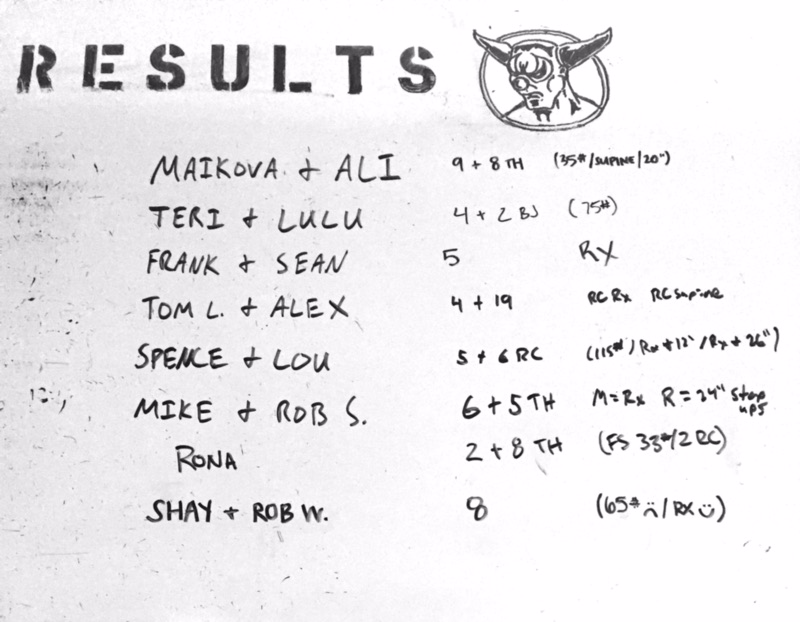 RESULTS
MAIKOVA + ALI 9 + 8 TH (35#/SUPINE/20")
TERI + LULU 4 + 2 BJ (75#)
FRANK + SEAN 5 RX
TOM L. + ALEX 4 + 19 RC Rx RC supine
SPENCE + LOU 5 + 6 RC (115#/Rx+12"/Rx+26")
MIKE + ROB S. 6 + 5 TH M=Rx R=24" step ups
RONA 2 + 8 TH (FS 33#/2 RC)
SHAY + ROB W. 8 (65# ☹/RX ☺)